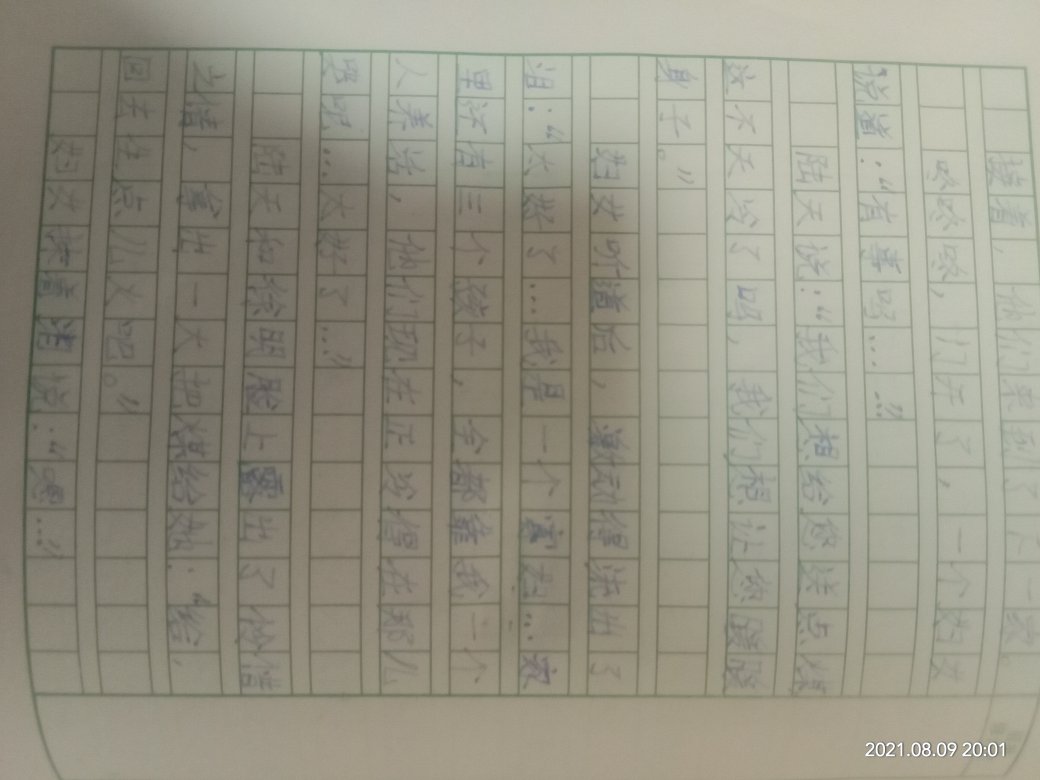 接着，他们来到了下一家。
咚咚咚，门开了，一个妇女
说道：“有事吗……”
陆天说：“我们想给您送点煤
这不天冷了吗，我们想让您暖暖
身子。”
妇女听道后，激动得流出了
泪：“太好了…我是一个寡妇…家
里还有三个孩子，全都靠我一个
人养活，他们现在正冷得在那儿
哭呢…太好了…”
陆天和徐明脸上露出了怜惜
之情，拿出一大把煤给她：“给，
回去生点儿火吧。”
妇女说：“嗯…”
2021.08.09 20:01